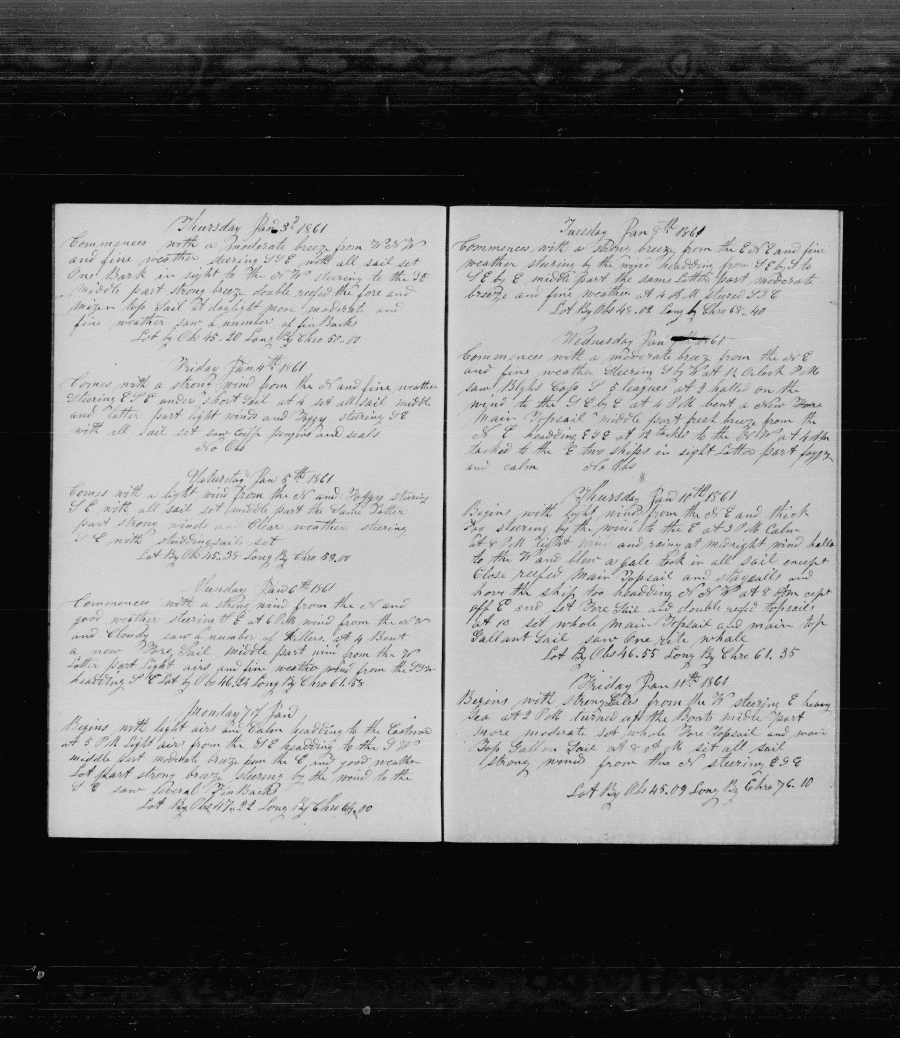 Thursday Jan 3d 1861
Commences with a moderate breeze from W N W
and fine weather steering S S E with all sail set
One Bark in sight to the N W steering to the SE
Middle part strong breeze double reefed the fore and
mizen top Sail at daylight more moderate and
fine weather saw a number of fin Backs
Lat by Obs 45..20 Long By Chro 50..00
Friday Jan 4th 1861
Comes with a strong wind from the N and fine weather
Steering E S E under short Sail at 4 set all sail middle
and latter part light winds and Foggy steering S E
with all Sail set saw penguins and seals
No Obs
Saturday Jan 5th 1861
Comes with a light wind from the N and Foggy steering
S E with all sail set middle part the Same Latter
part strong winds and Clear weather steering
S E with studding sails set
Lat By Obs 45.. Long By Chro 58.00
Sunday Jan 6th 1861
Commences with a strong wind from the N and
good weather steering E at 6 PM wind from the N W
and Cloudy saw a number of Killers at 4 Bent
a new Fore Sail middle part wind from the W
Latter part light airs and fine weather wind from the
headding S E Lat by Obs 46.24 Long By Chro 61.58
Monday 7th Jan
Begins with light airs and Calm headding to the Eastward
at 5 PM light airs from the S E headding to the S W
middle part moderate breeze from the E and good weather
Lat part strong breeze steering by the wind to the
S E saw several Fin Backs
Lat By Obs 47..22 Long By Chro 64..00
Tuesday Jan 8th 1861
Commences with a strong breeze from the E N E and fine
weather steering by the wind headding from S E by S to
S E by E middle part the same Latter part moderate
breeze and fine weather at 4 A M steered S S E
Lat By Obs 48..02 Long by Chro 68..40
Wednesday Jan 1861
Commences with a moderate breeze from the N E
and fine weather Steering S by W at 12 Oclock P M
saw Blighs Caps S 5 leagues at 2 halled on the
wind to the S E by E at 4 P M bent a New Fore
Main Topsail middle part fresh breeze from the
N E headding E S E at 12 tacked to the N W at 4
tacked to the E two ships in sight Latter part foggy
and calm No Obs
Thursday Jan 10th 1861
Begins with light winds from the N E and thick
Fog steering by the wind to the E at 3 P M Calm
at 8 P M light wind and rainy at midnight wind halled
to the W and blew a gale took in all sail except
Close reefed Main Topsail and staysails and
hove the ship too headding N N W at 8 Am kept
off E and set Fore Sail and double reefd topsails
at 10 set whole main Topsail and main top
Gallant Sail saw One rite whale
Lat By Obs 46.55 Long By Chro 61.35
Friday Jan 11th 1861
Begins with strong Gales from the W steering E heavy
Sea at 2 P M turned up the Boats midle part
more moderate set whole Fore Topsail and main
Top Gallon Sail at 8 P M set all sail
strong wind from the N steering E S E
Lat By Obs 45.09 Long By Chro 76.10